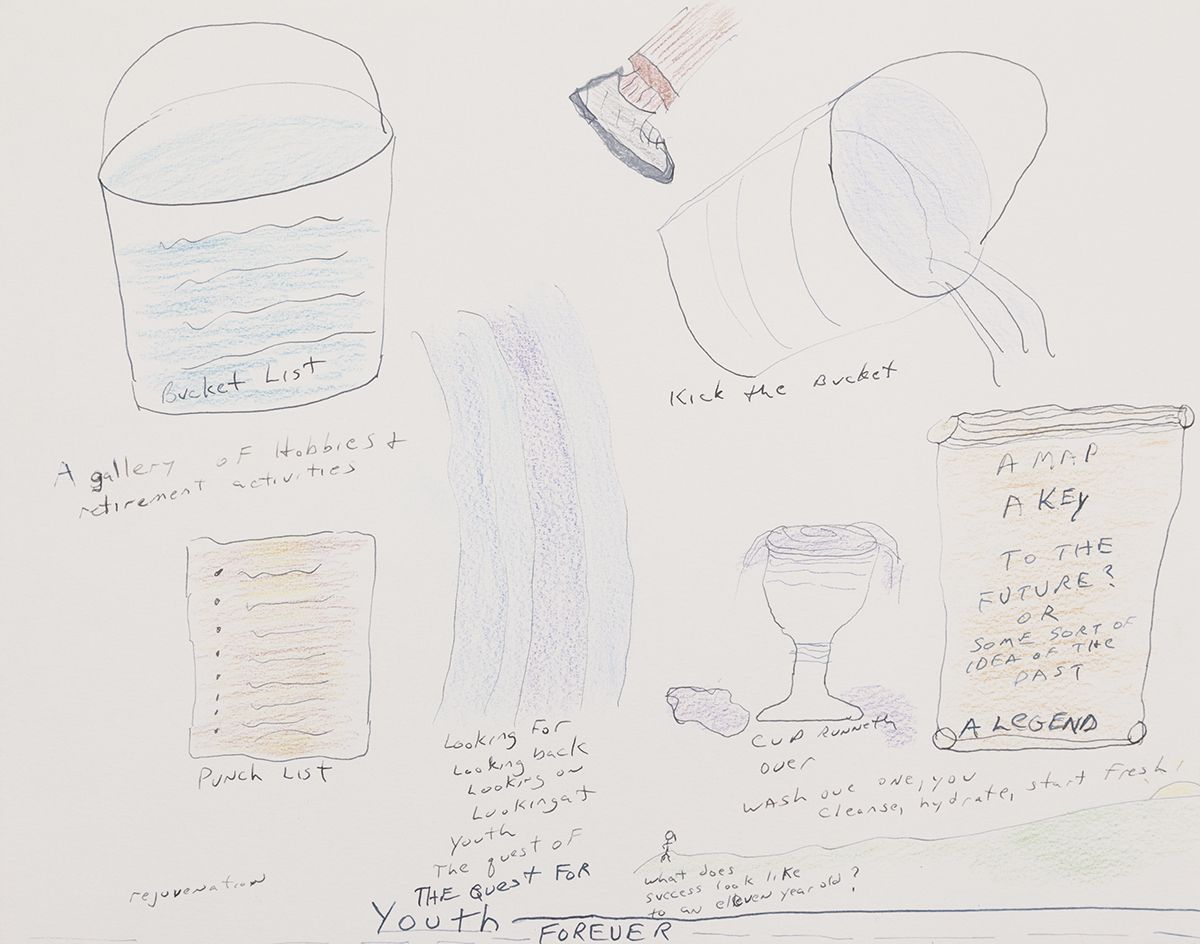 Bucket List
Kick the Bucket
A gallery of Hobbies +
retirement activities
A MAP
A KEY
TO THE
FUTURE?
OR
SOME SORT OF
IDEA OF THE
PAST
A LEGEND
Punch List
Looking For
Looking back
Looking on
Looking at
Youth
The quest of
THE Quest FOR
Youth
FOREVER
CUP RUNNETH
over
WASH over one, you
cleanse, hydrate, start fresh!
rejuvenation
what does
success look like
to an eleven year old?